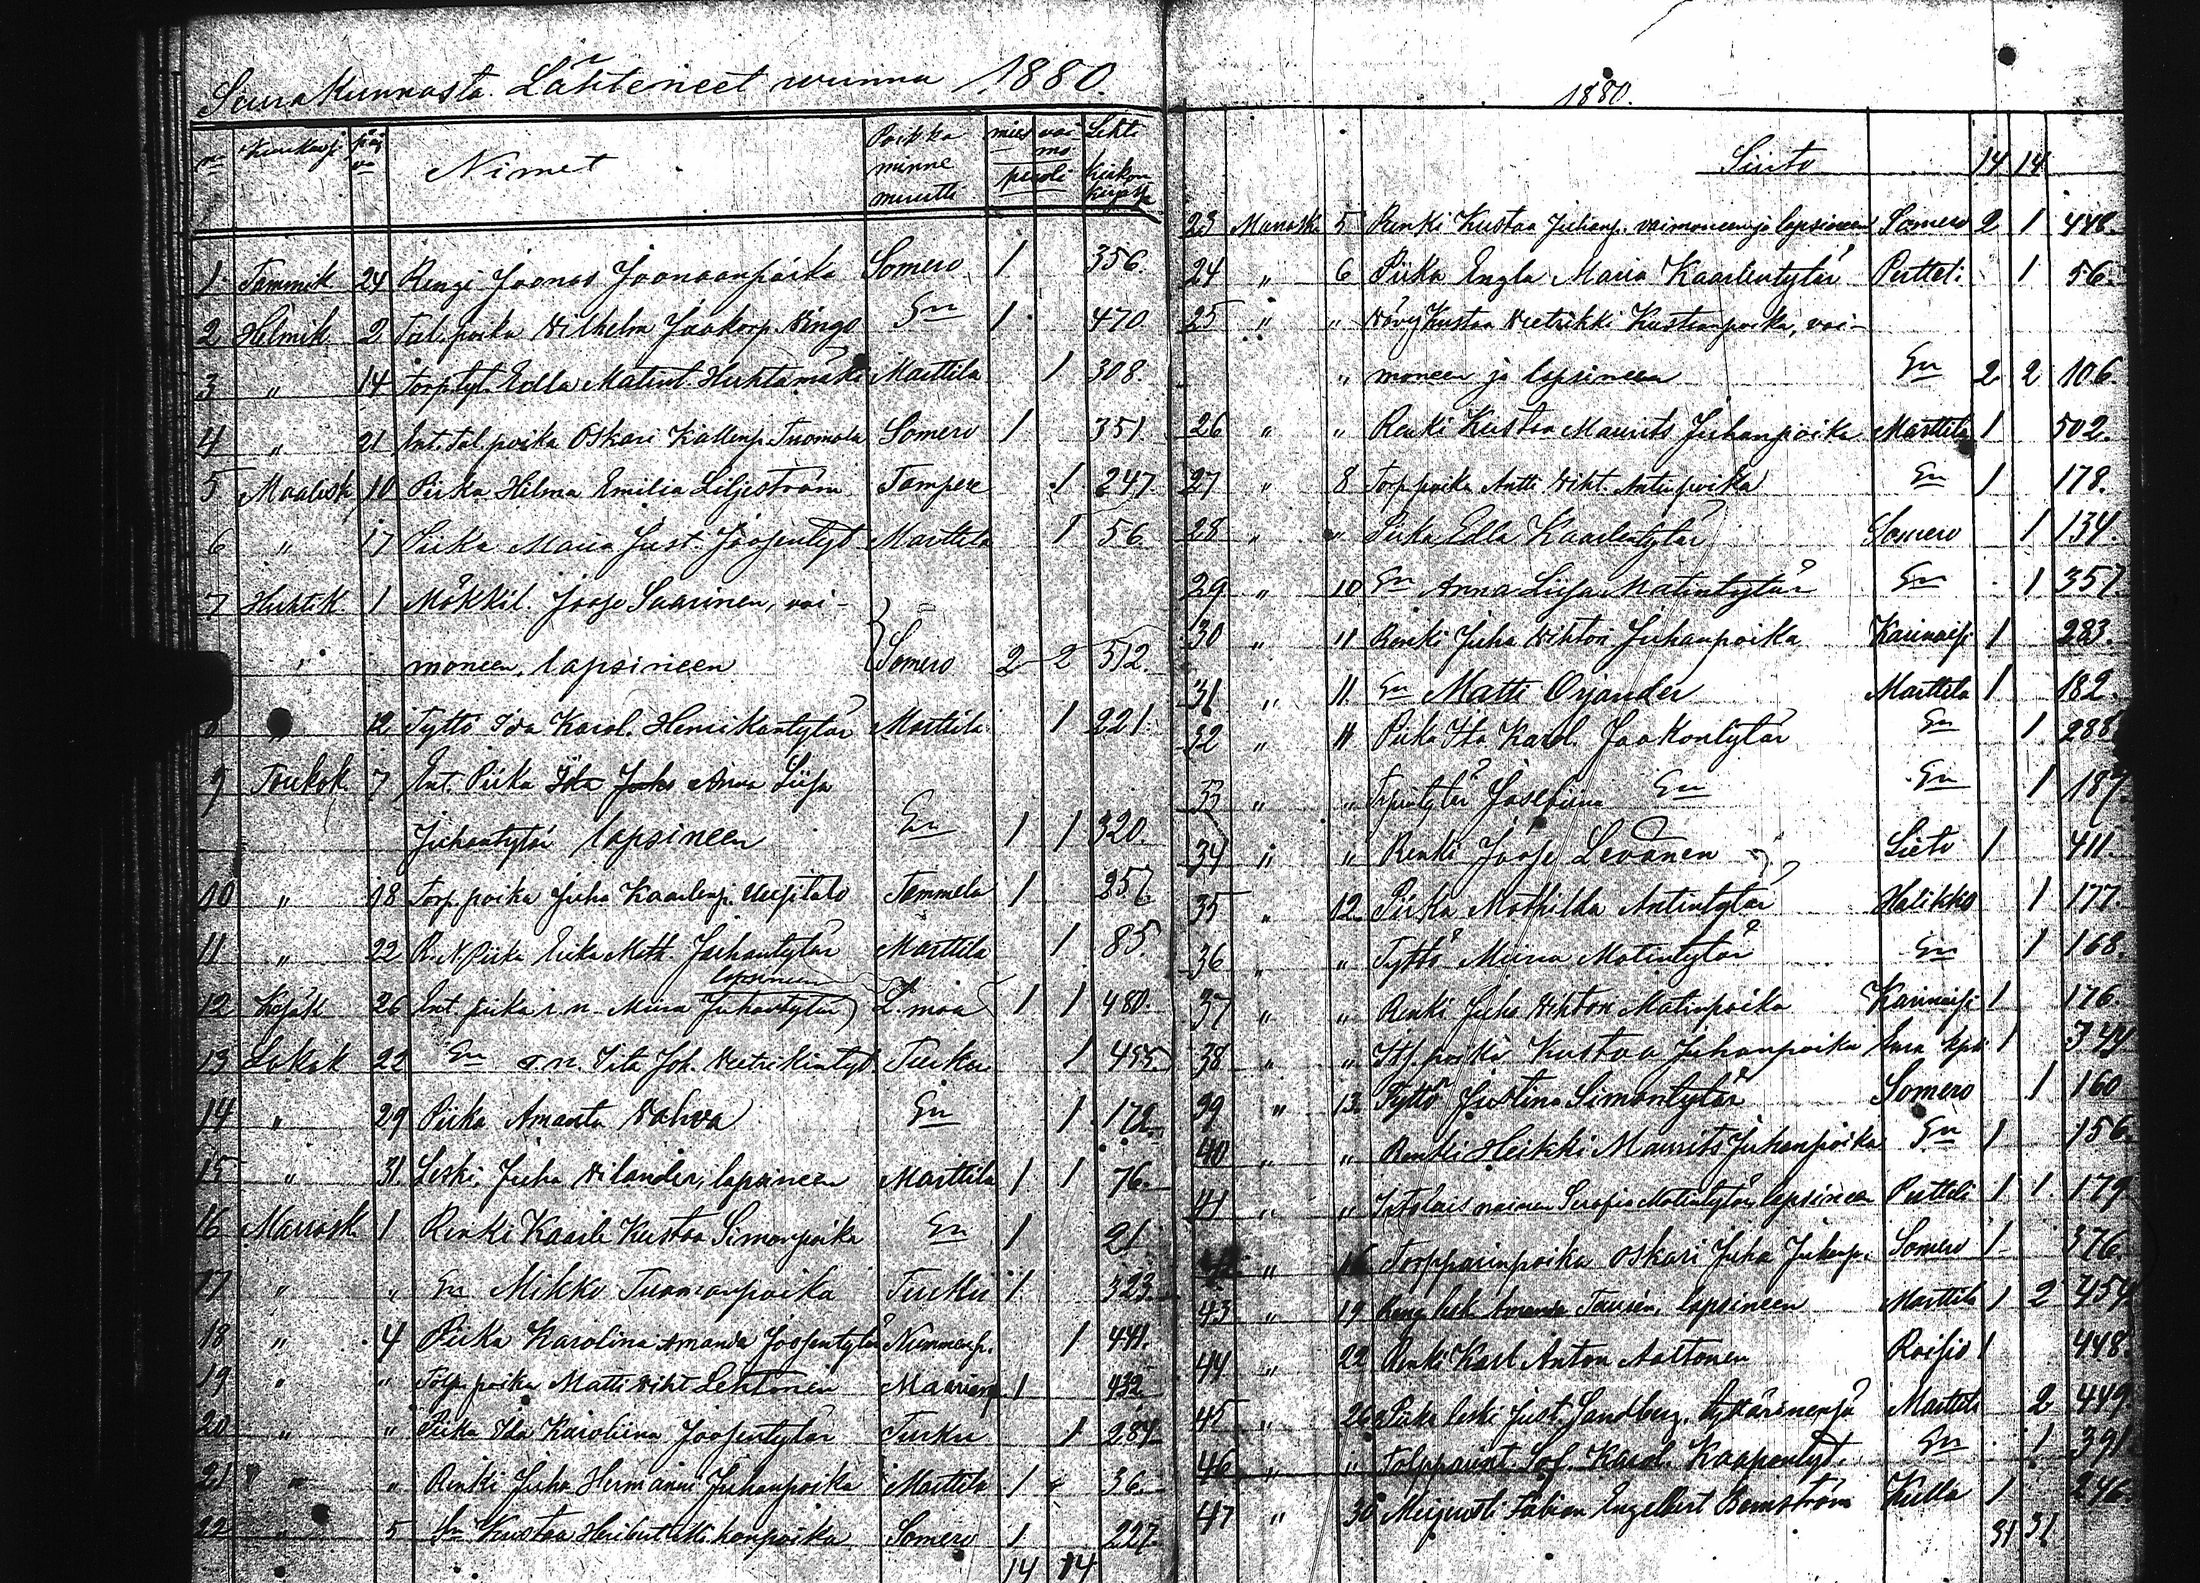 Seurakunnasta Lähteneet vuonna 1880.
Nimet Paikka minne muutti mies vai mo puoli Lehti kirkon kirjassa
1 Tammik 24 Rengi Joonas Joonaanpoika Somero 1 356.
2 Helmik 2 Tal. poika Wilhelm Jaakonp. En 1 470
3 " 14 Torp.tyt. Edla Matint. Huhtamäki Marttila 1 308.
4 " 21 Ent. Tal. poika Oskari Kallenp. Tuomola Somero 1 351
5 Maalisk 10 Piika Hilma Emilia Liljeström Tampere 1 247
6 " 17 Piika Maria Just. Joosentyt Marttila 1 56
7 Huhtik 1 Mökkil. Joose Saarinen, vai-
" moneen, lapsineen Somero 2 2 512.
8 " 12 Tyttö Ida Karol. Henrikantytär Marttila 1 221.
9 Toukok 7 Ent. Piika Anna Liisa
Juhantytär lapsineen En 1 1 320.
10 " 18 Torp. poika Juha Kaarlenp. Uusitalo Tammela 1 257
11 " 22 Piika Erika Math. Juhantytär Marttila 1 85.
lapsineen
12 Kesäk 26 Ent. piika i. n. Miina Juhantytär L. maa 1 1 480.
13 Lokak 22 En i. n. Iita Joh. Turku 1 455
14 " 29 Piika Amanta Vahva En 1 172
15 " 31. Leski, Juha Vilander, lapsineen Marttila 1 1 76.
16 Marrask 1 Renki Kaarle Kustaa Simonpoika En 1 21
17 " " En Mikko Tuomaanpoika Turku 1 323.
18 " 4 Piika Karolina Amanda Joosentytär Nummenp. 1 441.
19 " " poika Matti Viht Lehtonen Maarian 1 432
20 " " Piika Ida Karoliina Joosentytär Turku 1 284
21 " " Renki Juha Hermanni Juhanpoika Marttila 1 36.
22 " 5 En Kustaa Heribert Somero 1 227.
14 14
1880.
Siirto 14 14
23 Marrask 5 Renki Kustaa Juhanp. vaimoneen ja lapsineen Somero 2 1 448
24 " 6 Piika Engla Maria Kaarlentytär Pertteli 1 56.
25 " " Vävy Kustaa Vietrikki Kustaanpoika, vai-
" moneen ja lapsineen En 2 2 106.
26 " " Renki Kustaa Maurits Juhanpoika Marttila 1 502.
27 " 8 Torp poika Antti Viht. Antinpoika En 1 178.
28 " " Piika Edla Kaarlentytär Somero 1 134.
29 " 10 En Anna Liisa Matintytär En 1 357.
30 " 11 Renki Juha Vihtori Juhanpoika Karinaisi 1 283.
31 " 11. En Matti Orjander Marttila 1 182.
32 " 11 Piika Ita Karol. Jaakontytär En 1 288
33 " " Josefiina En En 1 187.
34 " " Renki Joose Levonen Lieto 1 411.
35 " 12 Piika Mathilda Antintytär Halikko 1 177.
36 " " Tyttö Miina Matintytär En 1 168.
37 " " Renki Juho Vihtori Matinpoika Karinaisi 1 176.
38 " " poika Kustaa Juhanpoika 1 344
39 " 13 Tyttö Justina Simontytär Somero 1 160
40 " " Renki Heikki Maurits Juhanpoika En 1 156.
41 " " Itselais nainen Serafia Matintytär lapsineen Pertteli 1 1 179
42 " 16 Torpparinpoika Oskari Juha Juhanp. Somero 1 376.
43 " 19 lesk Amanda lapsineen Marttila 1 2 454
44 " 22 Renki Karl Anton Aaltonen Raisio 1 448.
45 " 26 Piika leski Just. Sandberg, tyttärinensä Marttila 2 449.
46 " " Sof. Karol. Kaapontyt. En 1 391
47 " 30 Fabian Engelbert Kulla 1 246.
31 31